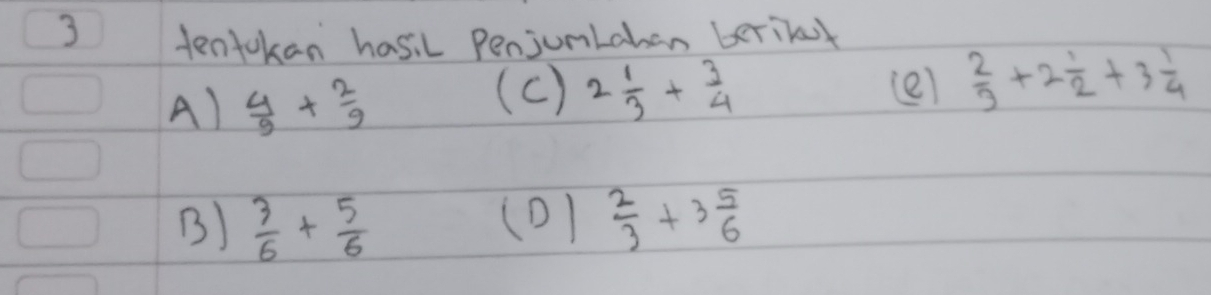 3 tentukan hasiL Penjumlahan berikut
A) 4/9 + 2/9 (C) 2 1/3 + 3/4 (e) 2/3 + 2 1/2 + 3 1/4
B) 3/6 + 5/6 (D) 2/3 + 3 5/6